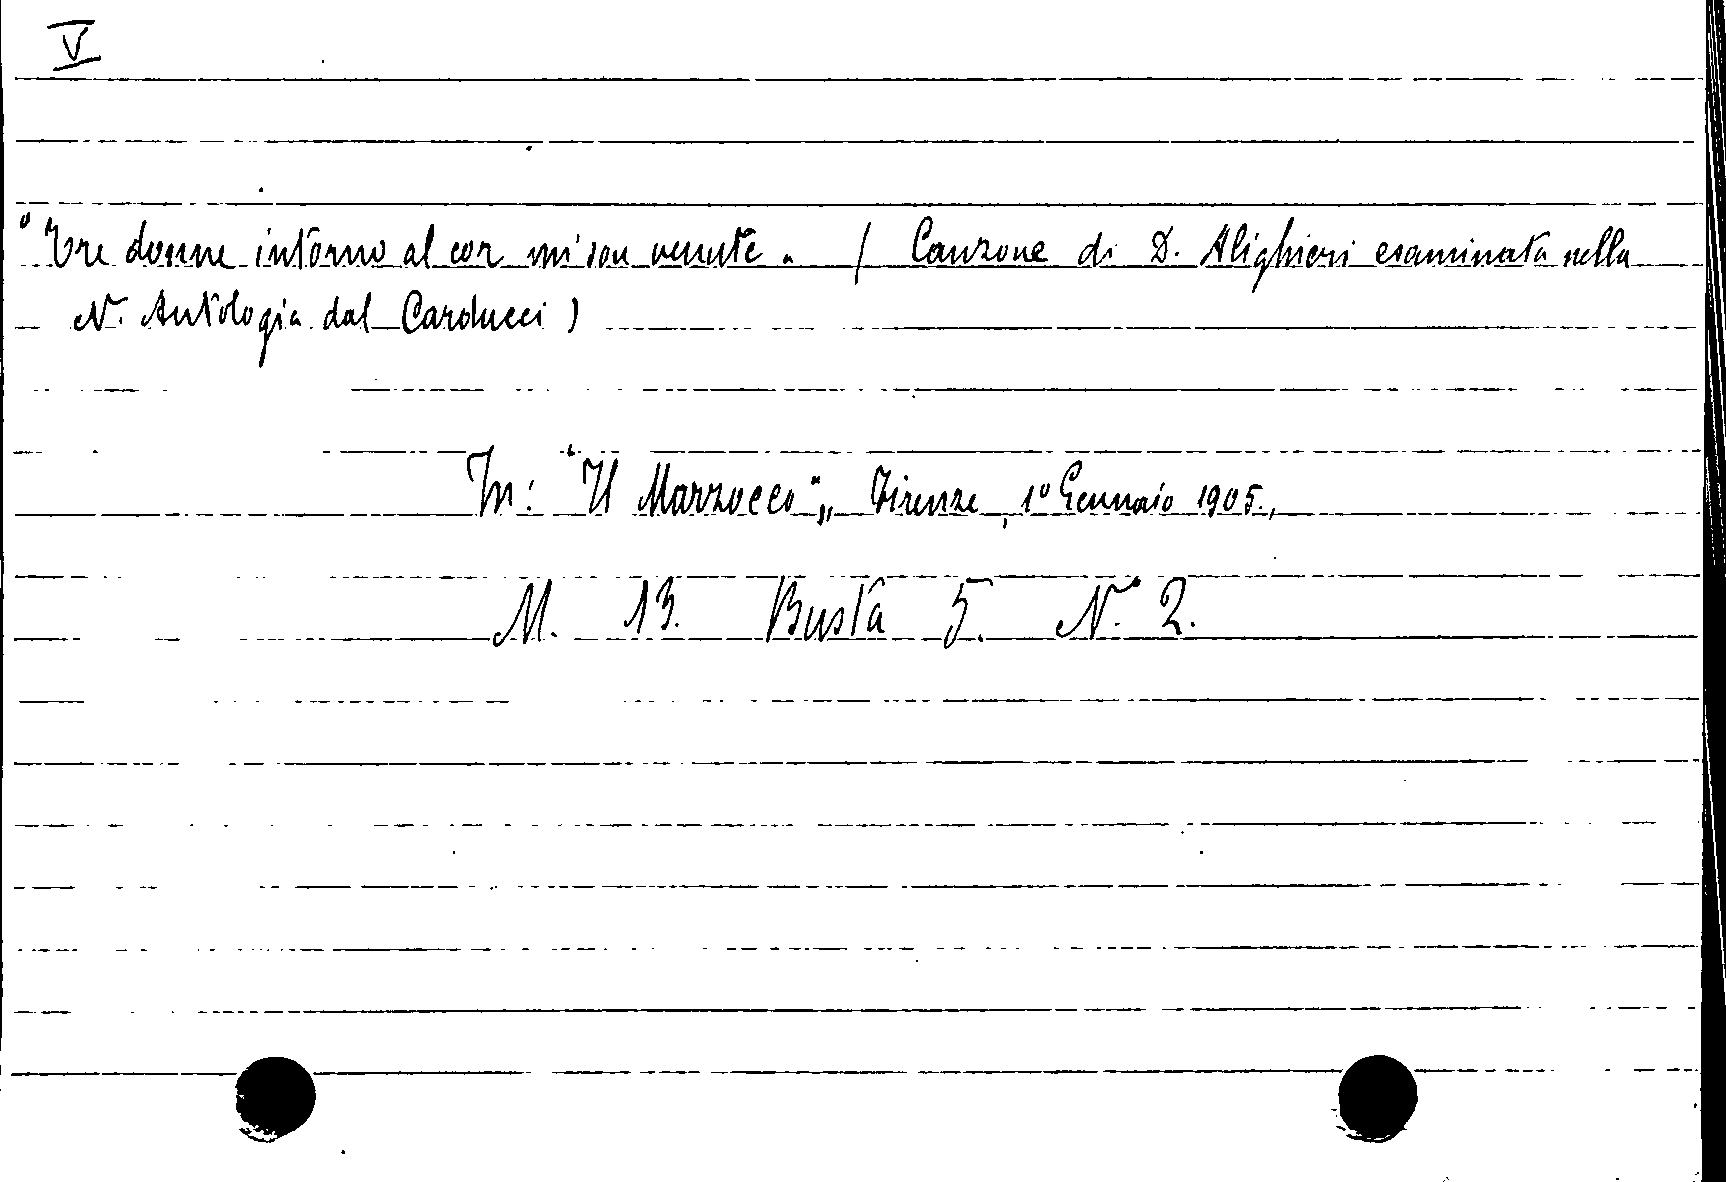 V
"Tre donne intorno al cor mi son venute. ( Canzone di D. Alighieri esaminata nella
N. Antologia dal Carducci )
In: "Il Marzocco", Firenze, 1º Gennaio 1905.,
M. 13. Busta 5. N. 2.